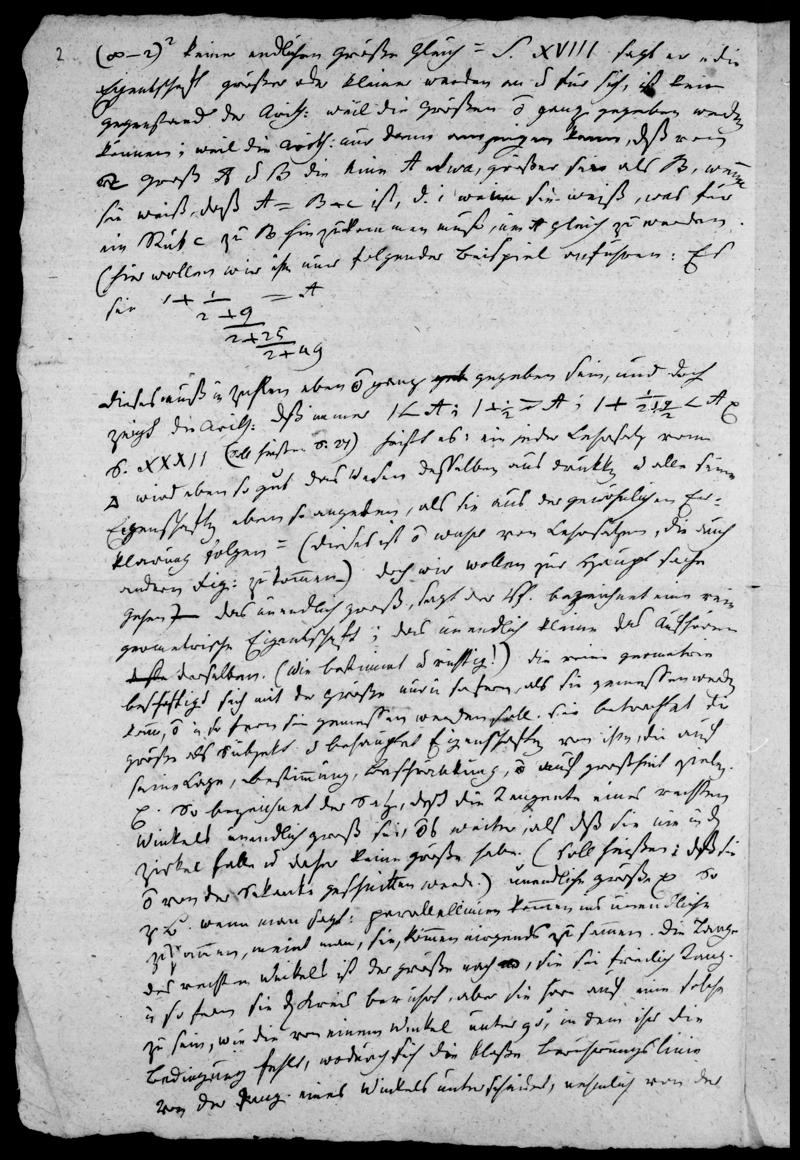 2 (∞−2)² keine endlichen Größe gleich = S. XVIII sagt er „die
Eigenschaft größer oder kleiner werden an für sich, ist kein
gegenstand der Arith: weil die größen ganz gegeben werden
können; weil die Arith: nur dann anzeigen kann, daß von
groß A B die eine A etwa, größer sei als B, wenn
sie weiß, daß A = B+c ist, d. i. wenn sie weiß, was für
ein Stück c zu B hinzukommen muß, um A gleich zu werden.
(hier wollen wir ihm nur folgendes Beispiel anführen: Es
sei 1 + 1 = A
2 + 9
2 + 25
2 + 49
dieses muß in Zahlen eben ganz gegeben sein, und doch
zeigt die Arith: daß immer 1 < A; 1 + 1/2 > A; 1 + < A
S. XXXII (soll heißen S. 27) heißt es: ein jeder Lehrsatz vom
Δ wird eben so gut das Wesen desselben aus drükken alle seine
Eigenschaften eben so angeben, als die aus der gewöhnlichen Er-
klärung folgen = (dieses ist wahr von Lehrsätzen, die auch
andern Fig: zukommen) doch wir wollen zur Hauptsache
gehen das unendlich große, sagt der Vf. bezeichnet eine rein
geometrische Eigenschaft; das unendlich kleine das Aufhören
derselben. (Wie bestimmt richtig!) die reine geometrie
beschäftigt sich mit der Größe nur in sofern, als sie gemessen werden
kann, in so fern sie gemessen werden soll. sie betrachtet die
größe als Subjekt behauptet Eigenschaften von ihr, die auf
seine Lage, Bestimmung, Beschränkung, auf großheit zielen.
So bezeichnet der Satz, daß die Tangente eines rechten
Winkels unendlich groß sei, weiter, als daß sie
Zirkel falle daher keine größe habe. (soll heißen: daß sie
von der Sekante geschnitten werde.) unendliche größe So
z. B. wenn man sagt: parallellinien kommen ins unendliche
zusammen, meint man, sie kommen nirgends zusammen. die Tang.
des rechten Winkels ist der größe nach , sie sei freilich Tang.
in so fern sie Kreis berührt, aber sie höre auf eine solche
zu sein, wie die von einem Winkel unter 90°, in dem ihr die
Bedingung fehlt, wodurch sich die bloße Berührungslinie
von der Tang. eines Winkels unterscheidet, nehmlich von der